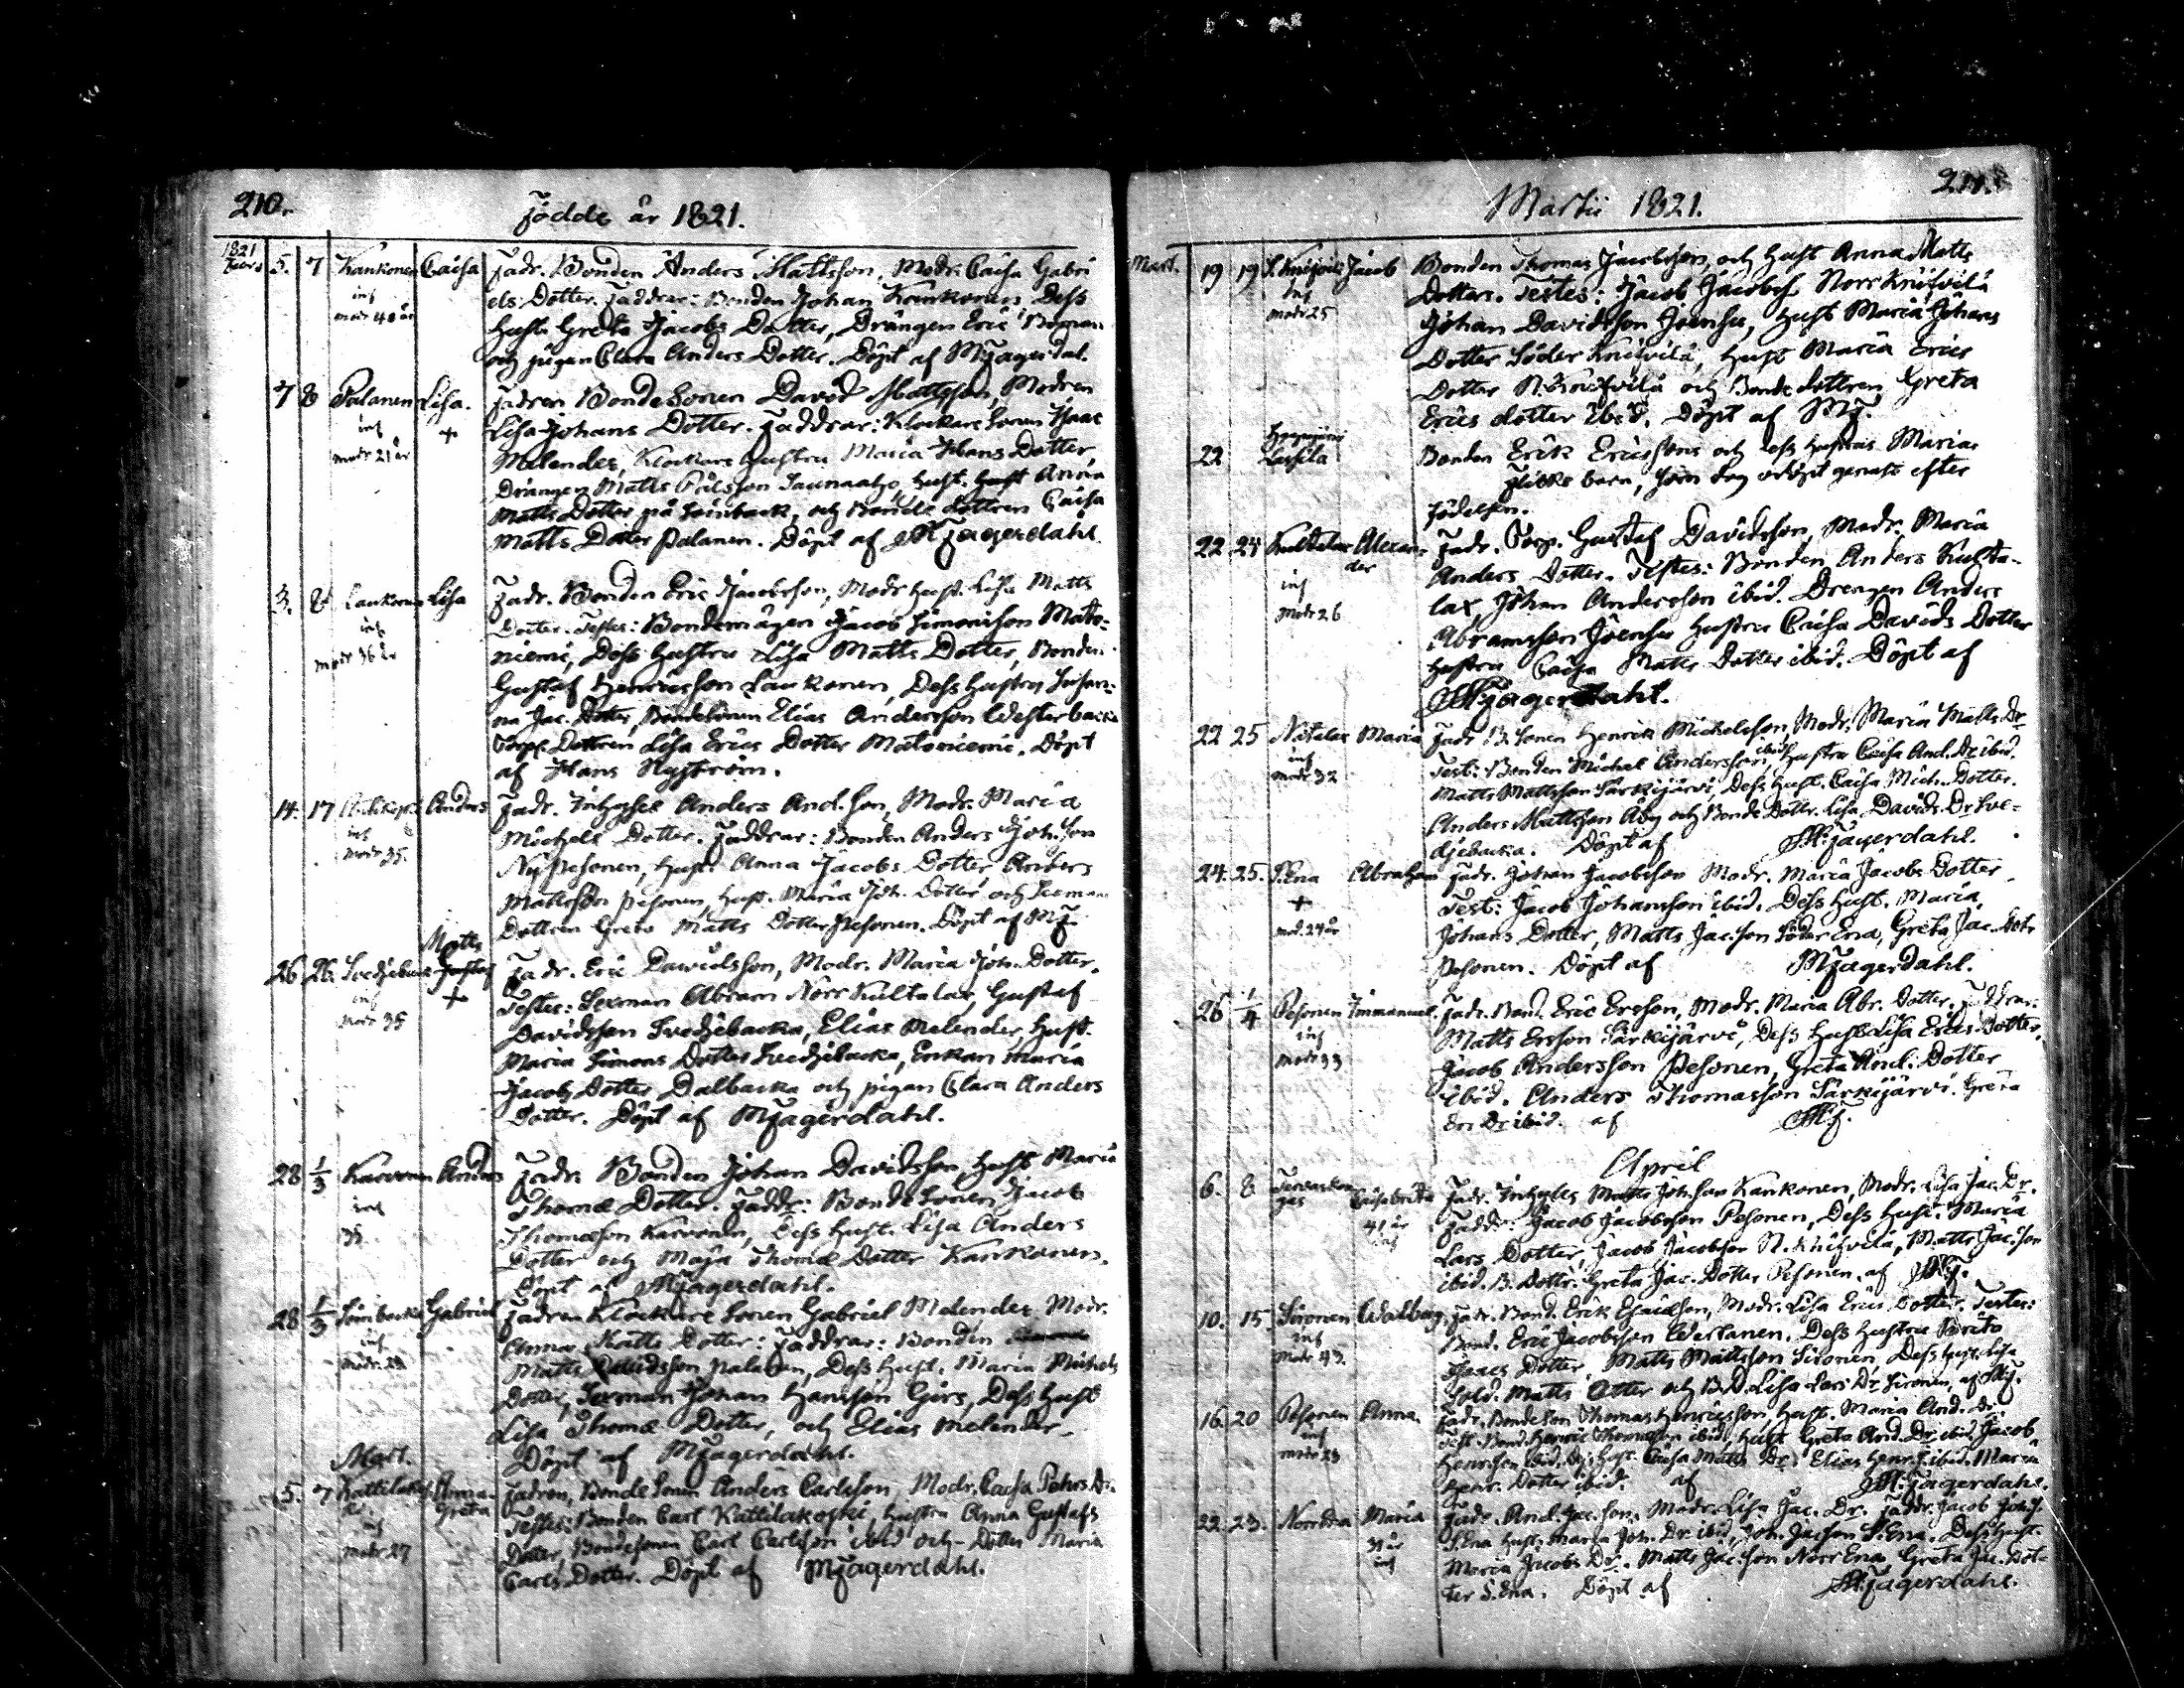 210.
Födde år 1821.
1821
Febr.
5. 7 Kankonen Caisa Fadr. Bonden Anders Mattsson, Modr. Caisa Gabri
inf els Dotter. Faddrar: Bonden Johan Kankonen, Dess
modr 40 år Hust. Greta Jacobs Dotter, Drängen Eric
och pigan Clara Anders Dotter. Döpt af MFagerdal.
7 8 Palanen Lisa. Fadren BondeSonen David Mattsson, Modren
inf + Lisa Johans Dotter. Faddrar: Klockare Sonen Isaac
modr 21 år Melender, Klockare Hustru Maria Hans Dotter,
Drängen Matts Pålsson Saunaaho, Hust. Anna
Matts Dotter på Soinback, och Bonde dottren Caisa
Matts Dotter Palanen. Döpt af MFagerdahl.
3. 8 Laukonen Lisa Fadr. Bonden Eric Jacobsson, Modr Hust. Lisa Matts
inf Dotter. Testes: Bondemågen Jacob Simonsson Mato-
modr 36 år niemi, Dess Hustru Lisa Matts Dotter, Bonden
Gustaf Henricsson Laukonen, Dess Hustru Susan-
na Jac. Dotter, BondeSonen Elias Andersson Westerbacka
Torp. Dottren Lisa Erics Dotter Matoniemi. Döpt
af Hans Nyström.
14. 17 Anders Fadr. Inhyses Anders And.Son, Modr. Maria
inf Michels Dotter. Faddrar: Bonden Anders Joh.Son
modr 35. NyPesonen, Hust. Anna Jacobs Dotter Anders
Mattsson Pesonen, Hust. Maria Joh. Dotter och
Dottren Greta Matts Dotter Pesonen. Döpt af MF.
Matts
26 26. Svedjebacka Gustaf Fadr. Eric Davidsson, Modr. Maria Joh. Dotter.
inf + Testes: Sexman Abram Norr Kultalax, Gustaf
modr 35 Davidsson Svedjebacka, Elias Melender, Hust.
Maria Simons Dotter Svedjebacka, Enkan Maria
Jacobs Dotter Dalbacka och pigan Clara Anders
Dotter. Döpt af MFagerdahl.
28 1/3 Karvonen Anders Fadr. Bonden Johan Davidsson, Hust Maria
inf Thomæ Dotter. Faddr: BondeSonen Jacob
35. Thomæson Karvonen, Dess Hust. Lisa Anders
Dotter och Maja Thomæ Dotter Kankonen.
Döpt af MFagerdahl.
28 1/3 Soinbacka Gabriel Fadren Klockare Sonen Gabriel Melender, Modr.
inf Anna Matts Dotter: Faddrar: Bonden
modr. Matts Davidsson Palanen, Dess Hust. Maria Michels
Dotter, Sexman Johan Hansson Girs, Dess Hust
Lisa Thomæ Dotter, och Elias Melender.
Döpt af MFagerdahl.
Mart.
5. 7 Kattilakoski Anna Fadren, Bonde Sonen Anders Carlsson, Modr. Caisa Pehrs Dr.
Greta Testes: Bonden Carl Kattilakoski, Hustru Anna Gustafs
inf Dotter, Bondesonen Carl Carlsson ibid och Dotter Maria
modr 27 Carls Dotter. Döpt af MFagerdahl.
211.
Martii 1821.
Mart. 19 19 S. Knifvilä Jacob Bonden Thomas Jacobsson, och Hust Anna Matts
inf Dotter. Testes: Jacob Jacobss. Norr Knifvilä
modr 25 Johan Davidsson Joensu, Hust Maria Johans
Dotter Söder Knifvilä, Hust Maria Erics
Dotter N. Knifvilä och Bonde dottren Greta
Erics dotter ibid. Döpt af MF.
22 Lassila Bonden Erik Ericssons och dess Hustrus Marias
Flicke barn, som dog odöpt genast efter
födelsen.
22 24 Kultalax Alexan- Fadr. Torp. Gustaf Davidsson, Modr. Maria
der Anders Dotter. Testes: Bonden Anders Kulta-
inf lax Johan Andersson ibid. Drengen Anders
modr 26 Abramsson Joensu Hustru Caisa Davids Dotter
Hustru Caisa Matts Dotter ibid. Döpt af
MFagerdahl.
22 25 Maria Fadr B.Sonen Henrik Michelsson, Modr. Maria Matts Dr
inf Test: Bonden Michel Andersson ibid, Hustru Caisa And. Dr ibid.
modr 32 Matts Mattsson Särkijärvi, Dess Hust. Caisa Mich. Dotter.
Anders Mattsson Åby och Bonde Dotter. Lisa Davids Dr Sve-
djebacka. Döpt af MFagerdahl.
24. 25. S.Ena Abraham Fadr. Johan Jacobsson Modr. Maria Jacobs Dotter
+ Test: Jacob Johansson ibid. Dess Hust. Maria
mod. 24 år Johans Dotter, Matts Jac.son Söder Ena, Greta Jac. Dotr
Pesonen. Döpt af MFagerdahl.
26 1/4 Pesonen Immanuel Fadr. Bond. Eric Ersson, Modr. Maria Abr. Dotter. Faddrar:
inf Matts Ersson Särkijärvi, Dess Hust Lisa Erics Dotter,
modr 33 Jacob Andersson Pesonen, Greta And. Dotter
ibid. Anders Thomasson Särkijärvi. Greta
Ers Dr ibid. af MF.
April
6. 8 Caisa Brita Fadr. Inhyses Matts Joh.son Kankonen, Modr. Lisa Jac. Dr.
41 år Faddr. Jacob Jacobsson Pesonen, Dess Hust. Maria
inf Lars Dotter, Jacob Jacobsson N. Knifvilä, Matts Jac.son
ibid. B. Dottr. Greta Jac. Dotter Pesonen. af MF.
10. 15. Sironen Walborg Fadr. Bond. Erik Esaiasson, Modr. Lisa Erics Dotter. Testes:
inf Bond. Eric Jacobsson Wertanen. Dess Hustru Brita
modr 43. Isaacs Dotter, Matts Mattsson Sironen, Dess Hust. Lisa
Matts Dotter och B.D. Lisa Lars Dr Sironen, af MF.
16. 20 Pesonen Anna. Fadr. Bondeson Thomas Henricsson, Hust. Maria And. Dr.
inf Test. Bond. Henric Thomasson ibid. Hust Greta And. Dr. ibid, Jacob
modr 23 Henricsson ibid. Dess Hust. Caisa Matts Dr. Elias Henr.s. ibid. Maria
Henr. Dotter ibid. af MFagerdahl.
22. 23. NorrEna Maria Fadr. And. Jac.son. Modr. Lisa Jac. Dr. Faddr. Jacob Johs.
31 år S.Ena Hust. Maria Joh. Dr. ibid, Joh. Jacsson S.Ena. Dess Hust.
inf Maria Jacobs Dr. Matts Jac.son Norr Ena, Greta Jac. Dot-
ter S.Ena. Döpt af MFagerdahl.